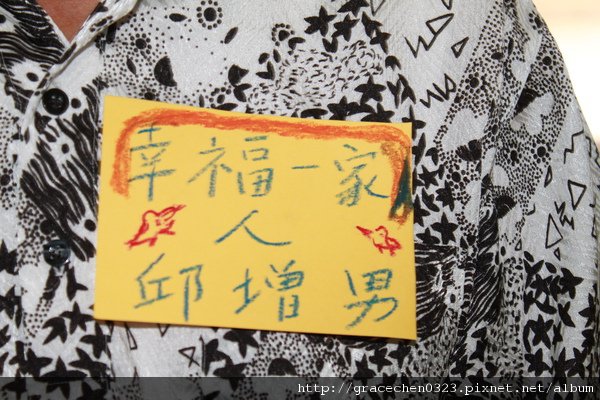 幸福一家
人
邱增男
http://gracechen0323.pixnet.net/album